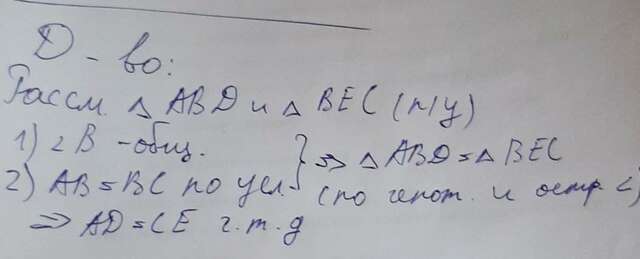 Д-во:
Рассм. △ ABD и △ BEC (п/у)
1) ∠B - общ.
2) AB = BC по усл. } ⇒ △ ABD = △ BEC
(по гипот. и остр. ∠)
⇒ AD = CE ч.т.д